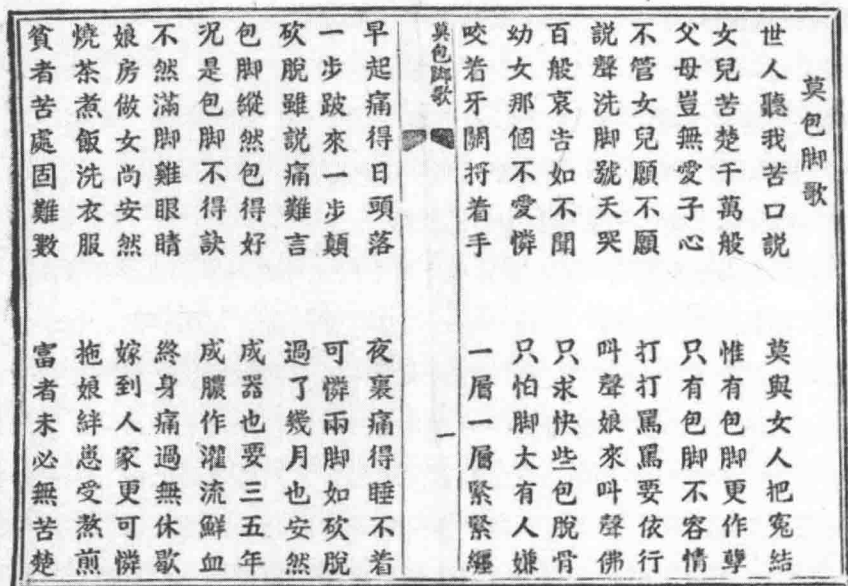 莫包脚歌
世人聽我苦口說　莫與女人把冤結
女兒苦楚千萬般　惟有包脚更作孽
父母豈無愛子心　只有包脚不容情
不管女兒願不願　打打罵罵要依行
說聲洗脚號天哭　叫聲娘來叫聲佛
百般哀告如不聞　只求快些包脫骨
幼女那個不愛憐　只怕脚大有人嫌
咬着牙關捋着手　一層一層緊緊纏
莫包脚歌　一
早起痛得日頭落　夜裏痛得睡不着
一步跛來一步顛　可憐兩脚如砍脫
砍脫雖說痛難言　過了幾月也安然
包脚縱然包得好　成器也要三五年
況是包脚不得訣　成膿作灌流鮮血
不然滿脚雞眼睛　終身痛過無休歇
娘房做女尚安然　嫁到人家更可憐
燒茶煮飯洗衣服　拖娘絆崽受熬煎
貧者苦處固難數　富者未必無苦楚